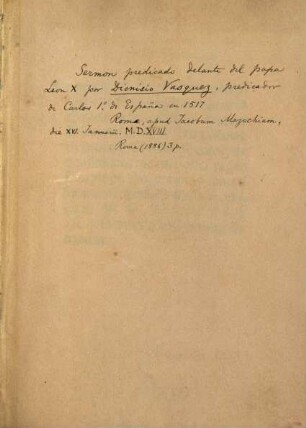 Sermon predicado delante del papa
Leon X por Dionisio Vasquez, predicador
de Carlos 1º de España en 1517
Romæ, apud Jacobum Mazochium,
die XVI. Januarii. M.D.XVIII.
Roma (1896) 3 p.